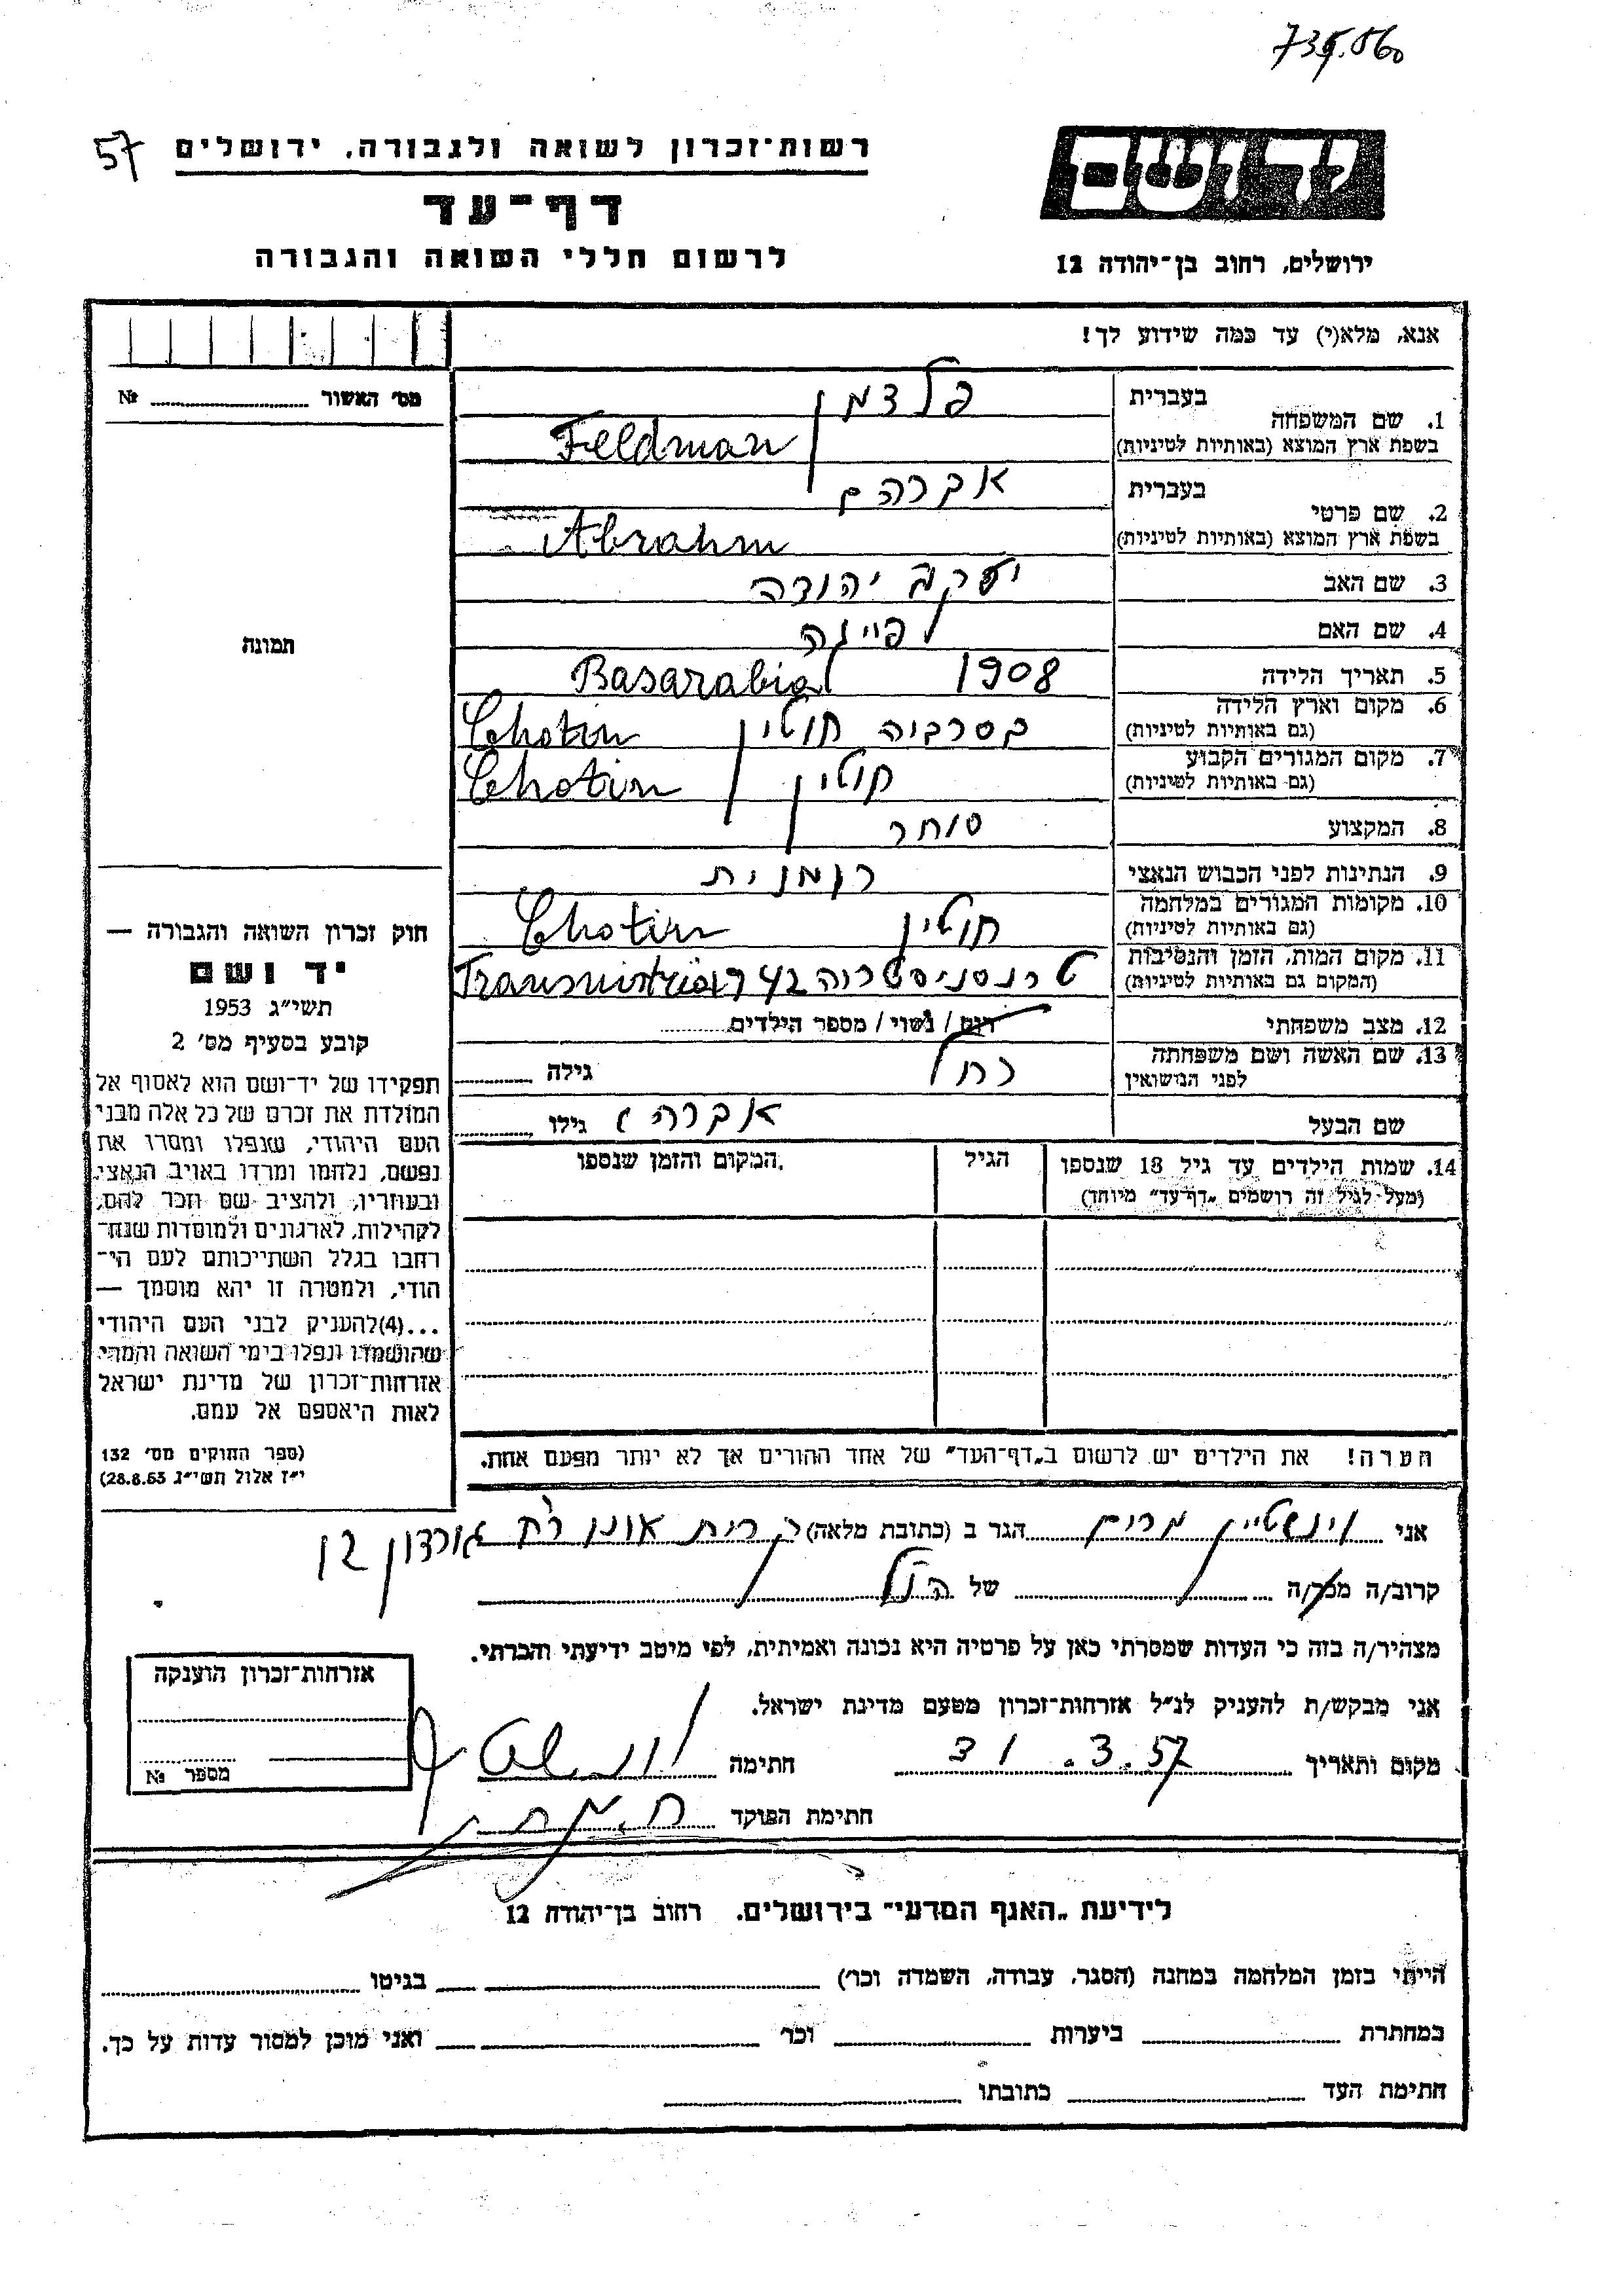 735.060
57
רשות־זכרון לשואה ולגבורה, ירושלים
יד ושם
דף־עד
לרשום חללי השואה והגבורה
ירושלים, רחוב בן־יהודה 12
אנא, מלא(י) עד כמה שידוע לך!
מס׳ האשור № 
1. שם המשפחה בעברית פלדמן
בשפת ארץ המוצא (באותיות לטיניות) Feldman
2. שם פרטי בעברית אברהם
בשפת ארץ המוצא (באותיות לטיניות) Abrahm
3. שם האב יעקב יהודה
4. שם האם פייגה
5. תאריך הלידה 1908 Basarabia
6. מקום וארץ הלידה
(גם באותיות לטיניות) בסרביה חוטין Chotin
7. מקום המגורים הקבוע
(גם באותיות לטיניות) חוטין Chotin
8. המקצוע סוחר
9. הנתינות לפני הכבוש הנאצי רומנית
10. מקומות המגורים במלחמה
(גם באותיות לטיניות) חוטין Chotin
11. מקום המות, הזמן והנסיבות
(המקום גם באותיות לטיניות) טרנסניסטריה 42 Transnistria
12. מצב משפחתי רווק / נשוי / מספר הילדים
13. שם האשה ושם משפחתה
לפני הנישואין רחל גילה
שם הבעל אברהם גילו
14. שמות הילדים עד גיל 18 שנספו
(מעל לגיל זה רושמים „דף־עד” מיוחד)
הגיל
המקום והזמן שנספו
תמונה
חוק זכרון השואה והגבורה —
יד ושם
תשי״ג 1953
קובע בסעיף מס׳ 2
תפקידו של יד־ושם הוא לאסוף אל
המולדת את זכרם של כל אלה מבני
העם היהודי, שנפלו ומסרו את
נפשם, נלחמו ומרדו באויב הנאצי
ובעוזריו, ולהציב שם וזכר להם,
לקהילות, לארגונים ולמוסדות שנח־
רבו בגלל השתייכותם לעם הי־
הודי, ולמטרה זו יהא מוסמך —
...(4) להעניק לבני העם היהודי
שהושמדו ונפלו בימי השואה והמרי
אזרחות־זכרון של מדינת ישראל
לאות היאספם אל עמם.
(ספר החוקים מס׳ 132
י״ז אלול תשי״ג 28.8.53)
הערה! את הילדים יש לרשום ב„דף־העד” של אחד ההורים אך לא יותר מפעם אחת.
אני וינשטיין מרים הגר ב (כתובת מלאה) קרית אונו רח גורדון 12
קרוב/ה מכר/ה של הנ״ל
מצהיר/ה בזה כי העדות שמסרתי כאן על פרטיה היא נכונה ואמיתית, לפי מיטב ידיעתי והכרתי.
אני מבקש/ת להעניק לנ״ל אזרחות־זכרון מטעם מדינת ישראל.
מקום ותאריך 31.3.57 חתימה
חתימת הפוקד
אזרחות־זכרון הוענקה
מספר №
לידיעת „האגף המדעי” בירושלים, רחוב בן־יהודה 12
הייתי בזמן המלחמה במחנה (הסגר, עבודה, השמדה וכו׳) בגיטו
במחתרת ביערות וכו׳ ואני מוכן למסור עדות על כך.
חתימת העד כתובתו